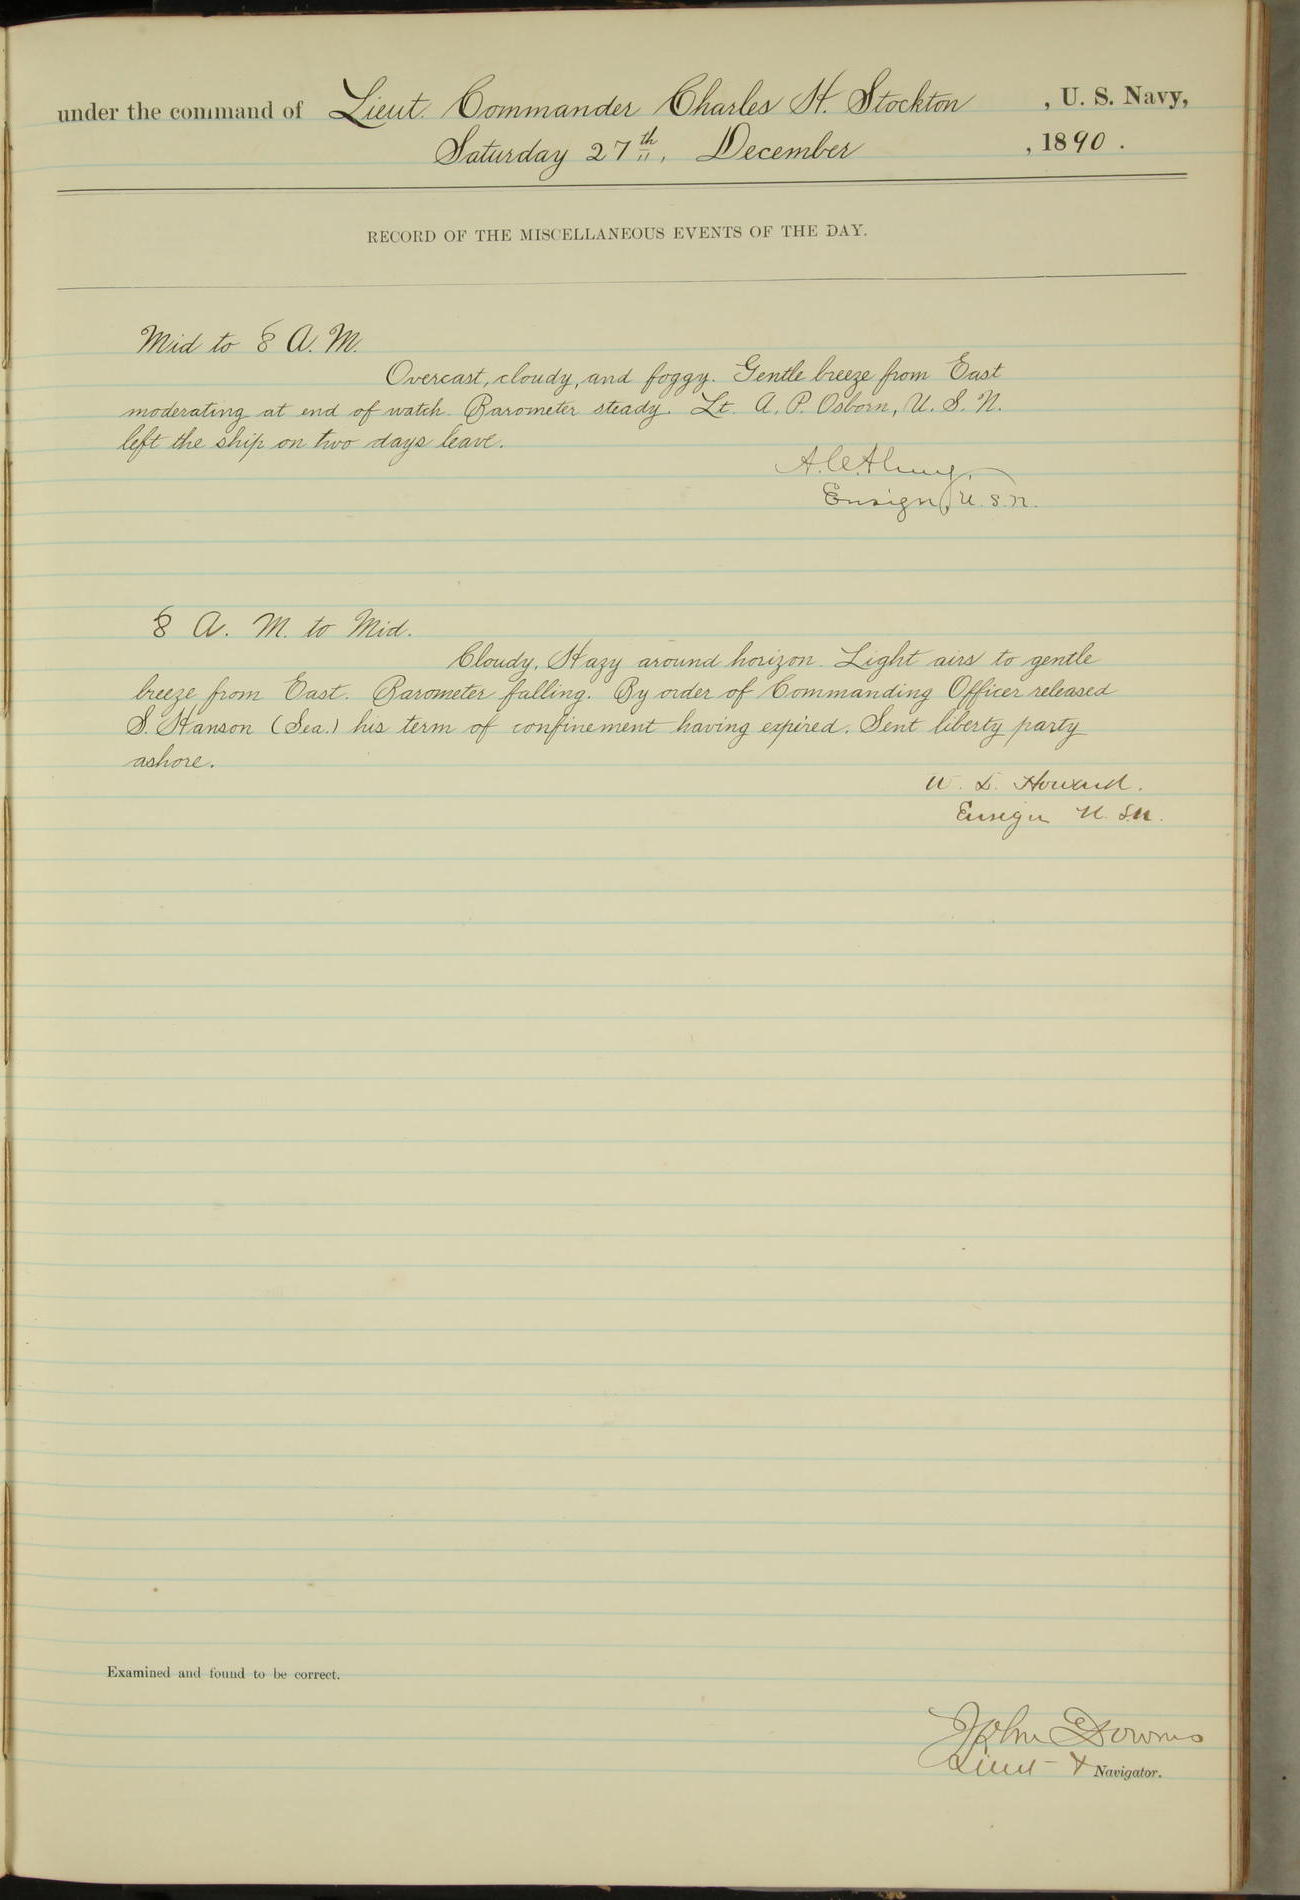 under the command of Lieut. Commander Charles H. Stockton, U. S. Navy,
Saturday 27th, December, 1890.
RECORD OF THE MISCELLANEOUS EVENTS OF THE DAY.
Mid to 8 A. M.
Overcast, cloudy, and foggy. Gentle breeze from East
moderating at end of watch. Barometer steady. Lt. A. P. Osborn, U. S. N.
left the ship on two days leave.
Ensign, U.S.N.
8 A. M. to Mid.
Cloudy, Hazy around horizon. Light airs to gentle
breeze from East. Barometer falling. By order of Commanding Officer released
S. Hanson (Sea.) his term of confinement having expired. Sent liberty party
ashore.
W. L. Howard.
Ensign U. S. N.
Examined and found to be correct.
John Downes
Lieut & Navigator.